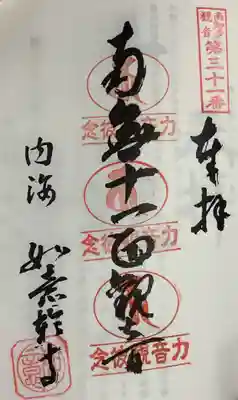 南知多
観音
第三十一番
奉拝
南無十一面觀世音
念彼觀音力
念彼觀音力
念彼觀音力
内海
如意輪寺